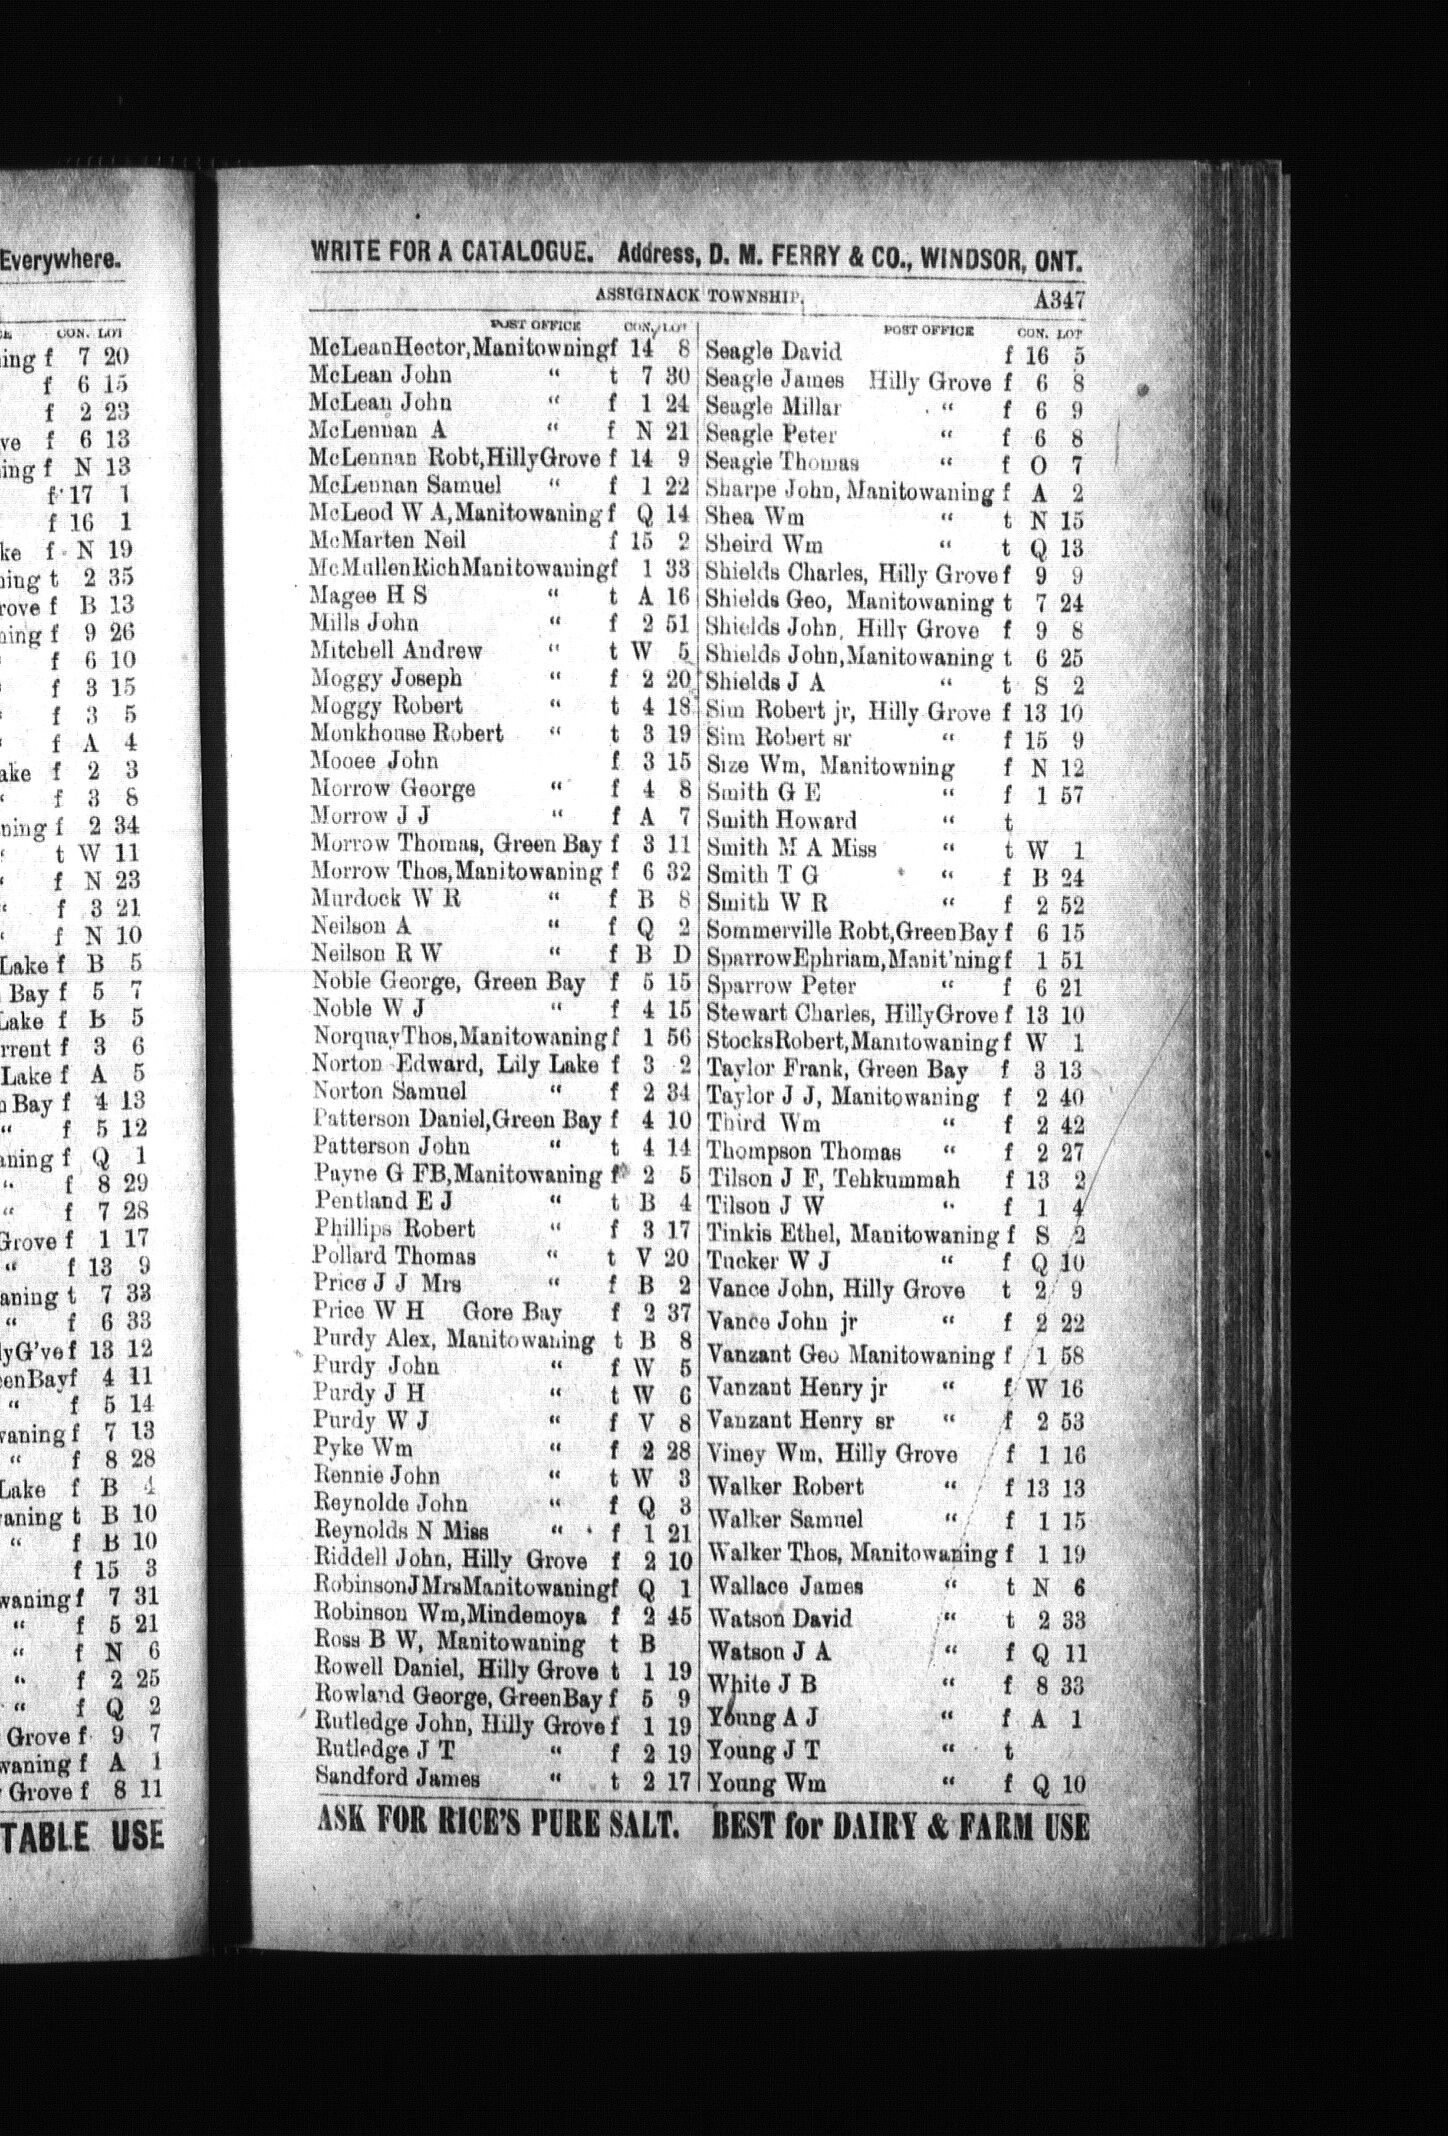 Everywhere.
CON. LOT
ning f 7 20
f 6 15
f 2 23
ve f 6 13
ing f N 13
f 17 1
f 16 1
ke f N 19
ning t 2 35
rove f B 13
ning f 9 26
f 6 10
f 3 15
f 3 5
f A 4
ake f 2 3
“ f 3 8
ning f 2 34
t W 11
f N 23
f 3 21
f N 10
Lake f B 5
Bay f 5 7
Lake f B 5
rrent f 3 6
Lake f A 5
n Bay f 4 13
“ f 5 12
aning f Q 1
“ f 8 29
“ f 7 28
Grove f 1 17
“ f 13 9
aning t 7 33
“ f 6 33
lyG've f 13 12
eenBayf 4 11
“ f 5 14
waning f 7 13
“ f 8 28
Lake f B 4
aning t B 10
“ f B 10
f 15 3
waning f 7 31
“ f 5 21
“ f N 6
“ f 2 25
“ f Q 2
Grove f 9 7
waning f A 1
Grove f 8 11
TABLE USE
WRITE FOR A CATALOGUE. Address, D. M. FERRY & CO., WINDSOR, ONT.
ASSIGINACK TOWNSHIP. A347
POST OFFICE CON. LOT
McLeanHector,Manitowningf 14 8
McLean John “ t 7 30
McLean John “ f 1 24
McLennan A “ f N 21
McLennan Robt,HillyGrove f 14 9
McLennan Samuel “ f 1 22
McLeod W A,Manitowaning f Q 14
McMarten Neil f 15 2
McMullenRichManitowaningf 1 33
Magee H S “ t A 16
Mills John “ f 2 51
Mitchell Andrew “ t W 5
Moggy Joseph “ f 2 20
Moggy Robert “ t 4 18
Monkhouse Robert “ t 3 19
Mooee John f 3 15
Morrow George “ f 4 8
Morrow J J “ f A 7
Morrow Thomas, Green Bay f 3 11
Morrow Thos,Manitowaning f 6 32
Murdock W R “ f B 8
Neilson A “ f Q 2
Neilson R W “ f B D
Noble George, Green Bay f 5 15
Noble W J “ f 4 15
NorquayThos,Manitowaning f 1 56
Norton Edward, Lily Lake f 3 2
Norton Samuel “ f 2 34
Patterson Daniel,Green Bay f 4 10
Patterson John “ t 4 14
Payne G FB,Manitowaning f 2 5
Pentland E J “ t B 4
Phillips Robert “ f 3 17
Pollard Thomas “ t V 20
Price J J Mrs “ f B 2
Price W H Gore Bay f 2 37
Purdy Alex, Manitowaning t B 8
Purdy John “ f W 5
Purdy J H “ t W 6
Purdy W J “ f V 8
Pyke Wm “ f 2 28
Rennie John “ t W 3
Reynolde John “ f Q 3
Reynolds N Miss “ f 1 21
Riddell John, Hilly Grove f 2 10
RobinsonJMrsManitowaningf Q 1
Robinson Wm,Mindemoya f 2 45
Ross B W, Manitowaning t B
Rowell Daniel, Hilly Grove t 1 19
Rowland George, GreenBay f 5 9
Rutledge John, Hilly Grove f 1 19
Rutledge J T “ f 2 19
Sandford James “ t 2 17
POST OFFICE CON. LOT
Seagle David f 16 5
Seagle James Hilly Grove f 6 8
Seagle Millar “ f 6 9
Seagle Peter “ f 6 8
Seagle Thomas “ f O 7
Sharpe John, Manitowaning f A 2
Shea Wm “ t N 15
Sheird Wm “ t Q 13
Shields Charles, Hilly Grove f 9 9
Shields Geo, Manitowaning t 7 24
Shields John, Hilly Grove f 9 8
Shields John,Manitowaning t 6 25
Shields J A “ t S 2
Sim Robert jr, Hilly Grove f 13 10
Sim Robert sr “ f 15 9
Size Wm, Manitowning f N 12
Smith G E “ f 1 57
Smith Howard “ t
Smith M A Miss “ t W 1
Smith T G “ f B 24
Smith W R “ f 2 52
Sommerville Robt,GreenBay f 6 15
SparrowEphriam,Manit'ningf 1 51
Sparrow Peter “ f 6 21
Stewart Charles, HillyGrove f 13 10
StocksRobert,Manitowaning f W 1
Taylor Frank, Green Bay f 3 13
Taylor J J, Manitowaning f 2 40
Third Wm “ f 2 42
Thompson Thomas “ f 2 27
Tilson J F, Tehkummah f 13 2
Tilson J W “ f 1 4
Tinkis Ethel, Manitowaning f S 2
Tucker W J “ f Q 10
Vance John, Hilly Grove t 2 9
Vance John jr “ f 2 22
Vanzant Geo Manitowaning f 1 58
Vanzant Henry jr “ f W 16
Vanzant Henry sr “ f 2 53
Viney Wm, Hilly Grove f 1 16
Walker Robert “ f 13 13
Walker Samuel “ f 1 15
Walker Thos, Manitowaning f 1 19
Wallace James “ t N 6
Watson David “ t 2 33
Watson J A “ f Q 11
White J B “ f 8 33
Young A J “ f A 1
Young J T “ t
Young Wm “ f Q 10
ASK FOR RICE'S PURE SALT. BEST for DAIRY & FARM USE